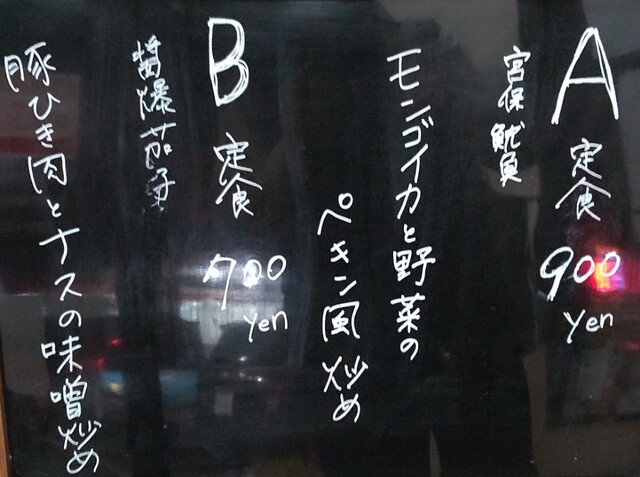 A 定食 900 yen
宮保魷魚
モンゴイカと野菜の
ペキン風炒め
B 定食 700 yen
醤爆茄子
豚ひき肉とナスの味噌炒め